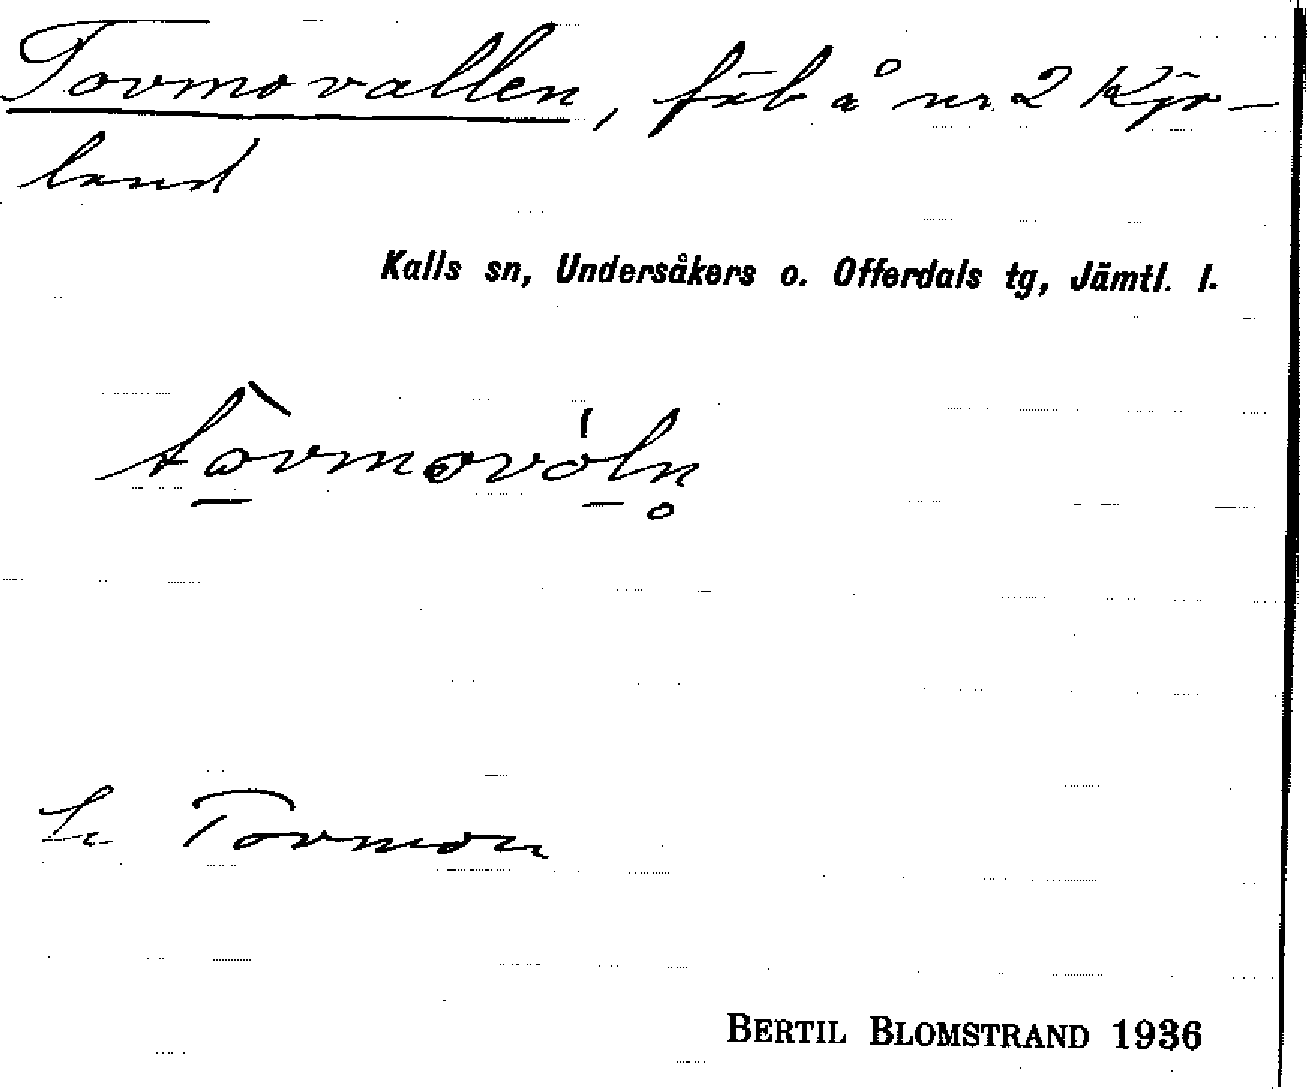 Tovmovallen, fäb å nr 2 Kjo-
land
Kalls sn, Undersåkers o. Offerdals tg, Jämtl. l.
tòvmovóln̥
Se Tovmon
BERTIL BLOMSTRAND 1936